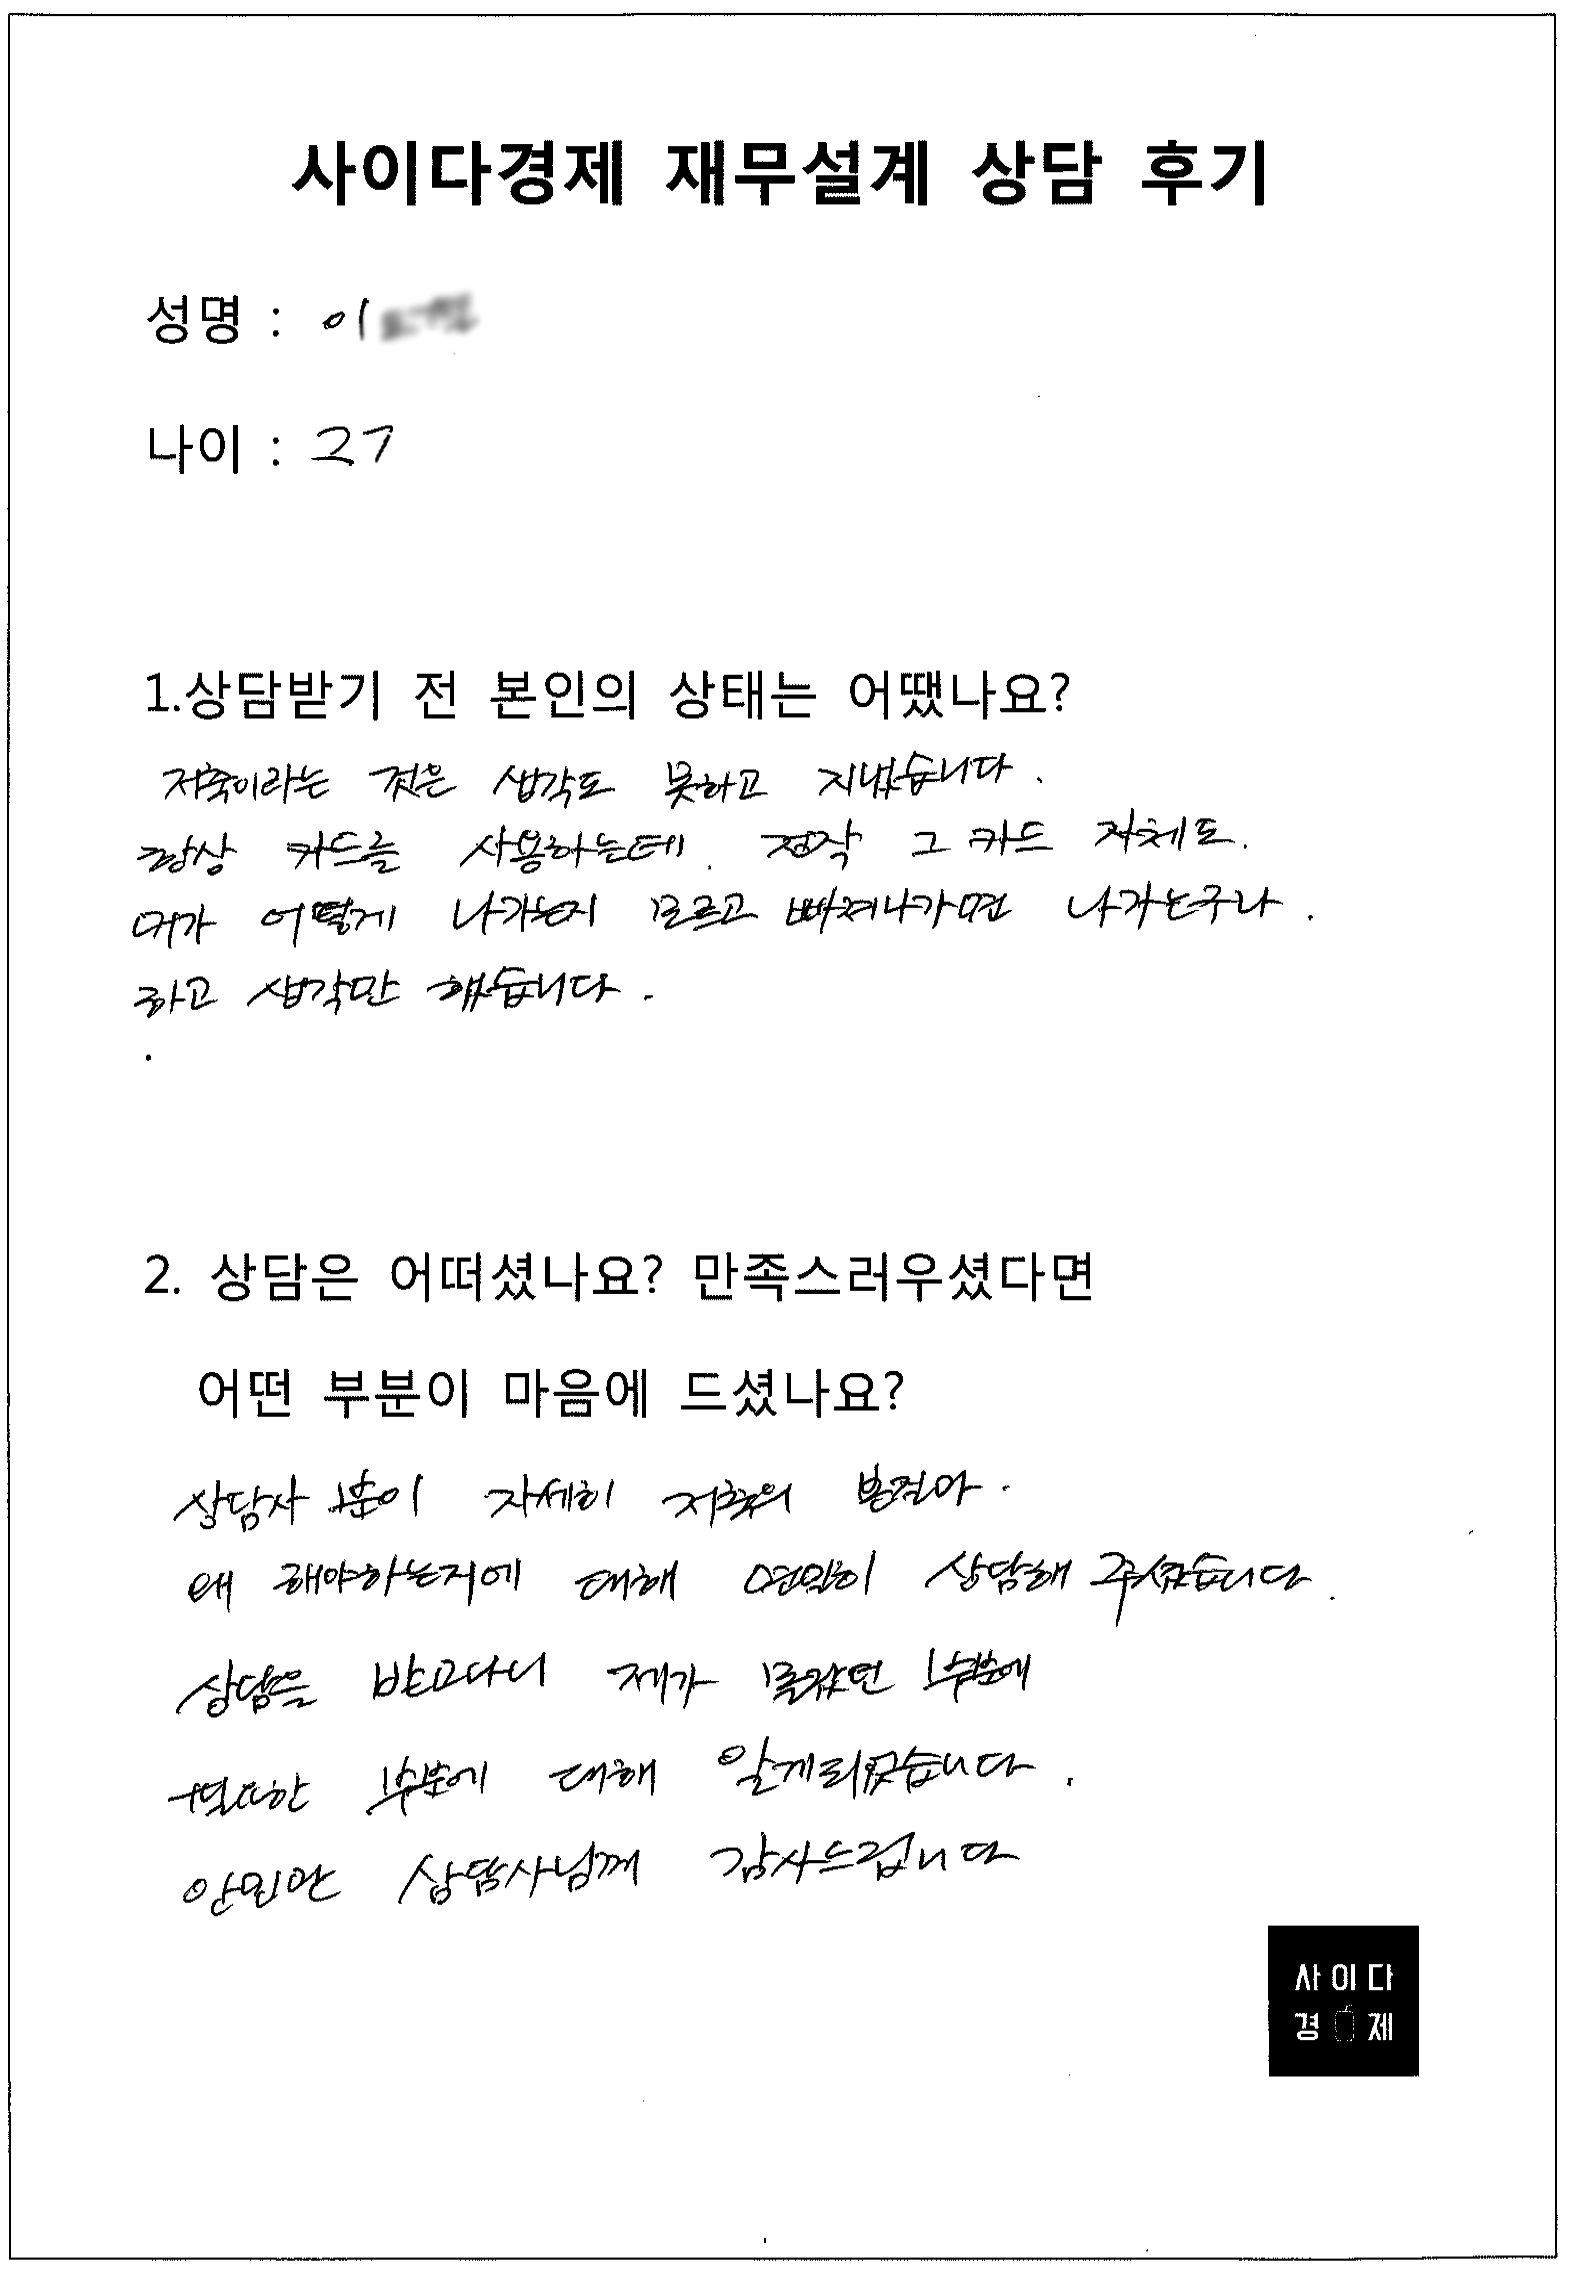 사이다경제 재무설계 상담 후기
성명 : 이
나이 : 27
1.상담받기 전 본인의 상태는 어땠나요?
저축이라는 것은 생각도 못하고 지냈습니다.
항상 카드를 사용하는데. 정작 그 카드 자체도.
머가 어떻게 나가는지 모르고 빠져나가면 나가는구나.
하고 생각만 했습니다.
2. 상담은 어떠셨나요? 만족스러우셨다면
어떤 부분이 마음에 드셨나요?
상담사 분이 자세히 저축의
왜 해야하는지에 대해 면밀히 상담해 주셨습니다.
상담을 받고나니 제가 몰랐던 부분에
필요한 부분에 대해 알게되었습니다.
상담사님께 감사드립니다
사이다
경제